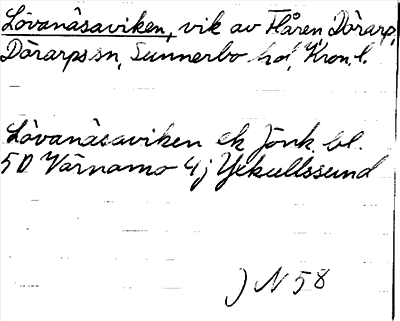 Lövanäsaviken, vik av Flåren Dörarp,
Dörarps sn, Sunnerbo hd, Kron. l.
Lövanäsaviken ek Jönk. bl.
5D Värnamo 4j Yxkullssund
JN 58